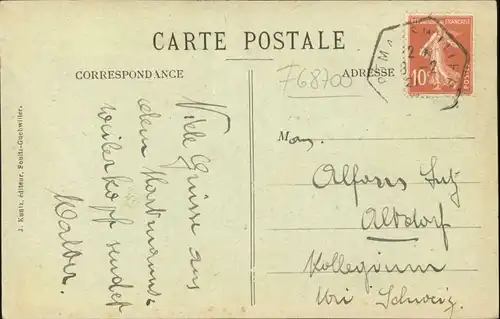 CARTE POSTALE
CORRESPONDANCE
ADRESSE
F68700
RÉPUBLIQUE FRANÇAISE
10
POSTES
Viele Grüsse aus
dem Hartmanns-
weilerkopf sendet
Walter.
J. Kuntz, éditeur, Soultz-Guebwiller.
Alfons
Altdorf
Kollegium
Uri Schweiz.